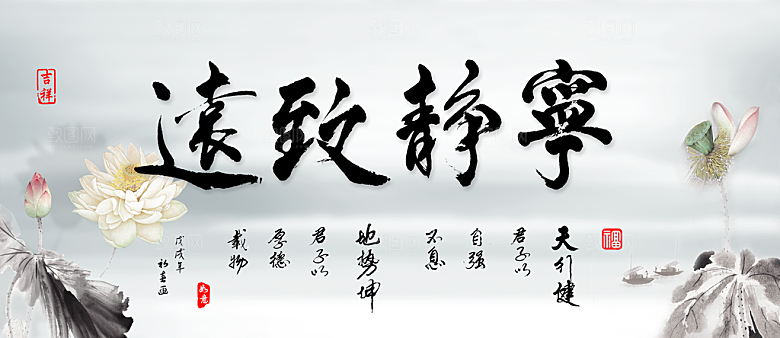 寧靜致遠
天行健
君子以
自强
不息
地势坤
君子以
厚德
载物
戊戌年
福
吉祥
如意